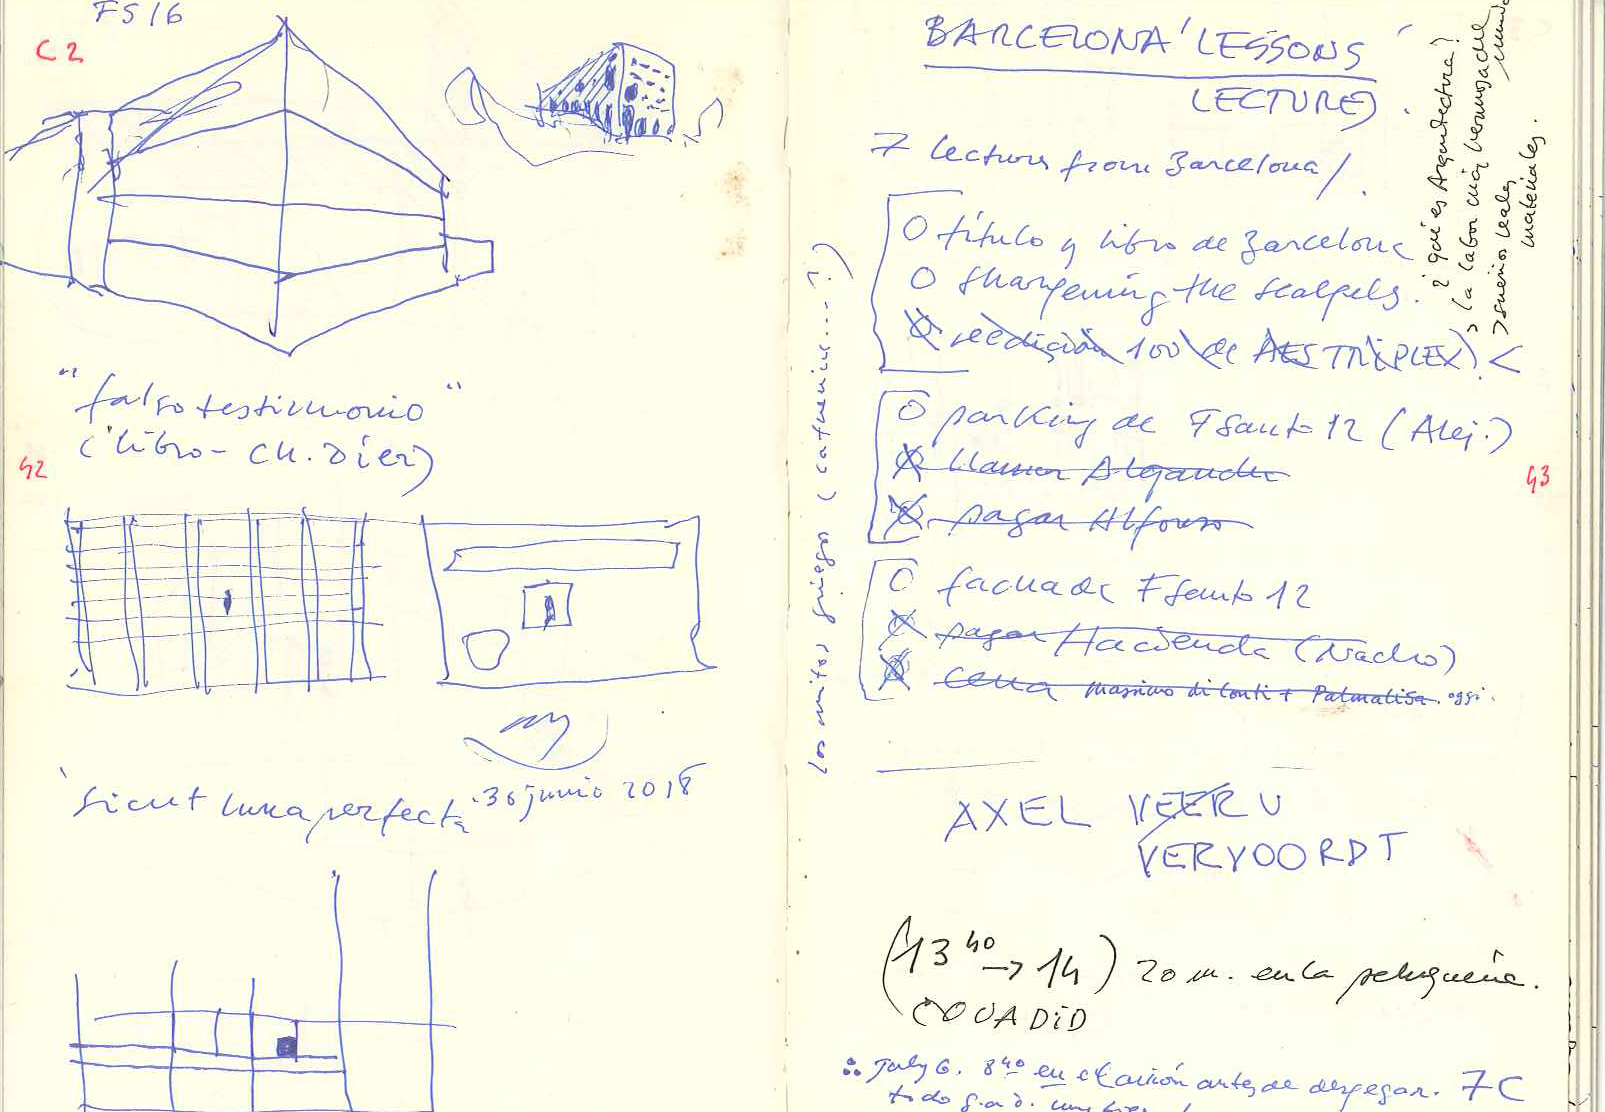 FS16
C2
"falso testimonio"
(libro - CH. Dier)
42
'Sicut luna perfecta. 30 junio 2018
BARCELONA 'LESSONS'
LECTURES.
7 lectures from Barcelona/.
O título y libro de Barcelona
O Sharpening the Scalpels.
O reedición 100 de AES TRIPLEX). <
O parking de FSanto 12 (Alej.)
O llamar Alejandro
O pagar Alfonso
43
O fachada FSanto 12
O pagar Hacienda (Nacho)
O cena massimo di Conti + Palmalisa. oggi.
¿Qué es Arquitectura?
> la labor más hermosa del mundo
> sueños reales
materiales.
los mitos griegos
AXEL VEERV
VERVOORDT
(13 40 → 14) 20 m. en la peluquería.
COVADID
July 6. 8 40 en el avión antes de despegar. 7C
todo